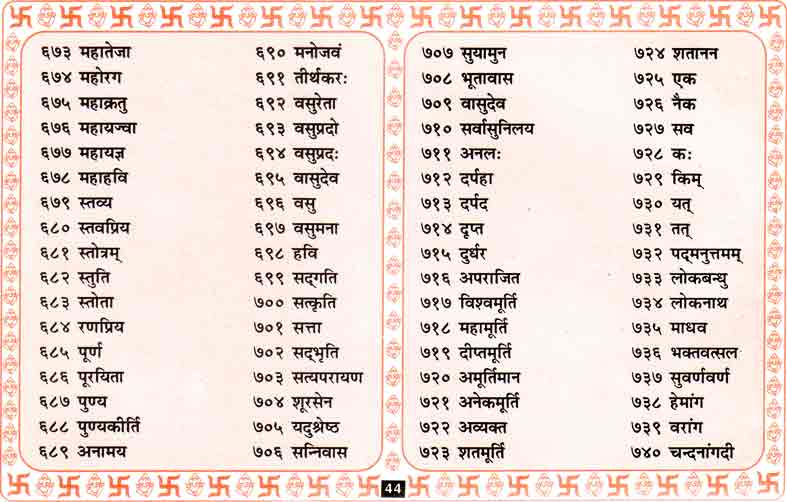 ६७३ महातेजा
६७४ महोरग
६७५ महाक्रतु
६७६ महायज्वा
६७७ महायज्ञ
६७८ महाहवि
६७९ स्तव्य
६८० स्तवप्रिय
६८१ स्तोत्रम्
६८२ स्तुति
६८३ स्तोता
६८४ रणप्रिय
६८५ पूर्ण
६८६ पूरयिता
६८७ पुण्य
६८८ पुण्यकीर्ति
६८९ अनामय
६९० मनोजवं
६९१ तीर्थकरः
६९२ वसुरेता
६९३ वसुप्रदो
६९४ वसुप्रदः
६९५ वासुदेव
६९६ वसु
६९७ वसुमना
६९८ हवि
६९९ सद्गति
७०० सत्कृति
७०१ सत्ता
७०२ सद्भृति
७०३ सत्यपरायण
७०४ शूरसेन
७०५ यदुश्रेष्ठ
७०६ सन्निवास
७०७ सुयामुन
७०८ भूतावास
७०९ वासुदेव
७१० सर्वासुनिलय
७११ अनलः
७१२ दर्पहा
७१३ दर्पद
७१४ दृप्त
७१५ दुर्धर
७१६ अपराजित
७१७ विश्वमूर्ति
७१८ महामूर्ति
७१९ दीप्तमूर्ति
७२० अमूर्तिमान
७२१ अनेकमूर्ति
७२२ अव्यक्त
७२३ शतमूर्ति
७२४ शतानन
७२५ एक
७२६ नैक
७२७ सव
७२८ कः
७२९ किम्
७३० यत्
७३१ तत्
७३२ पद्मनुत्तमम्
७३३ लोकबन्धु
७३४ लोकनाथ
७३५ माधव
७३६ भक्तवत्सल
७३७ सुवर्णवर्ण
७३८ हेमांग
७३९ वरांग
७४० चन्दनांगदी
44